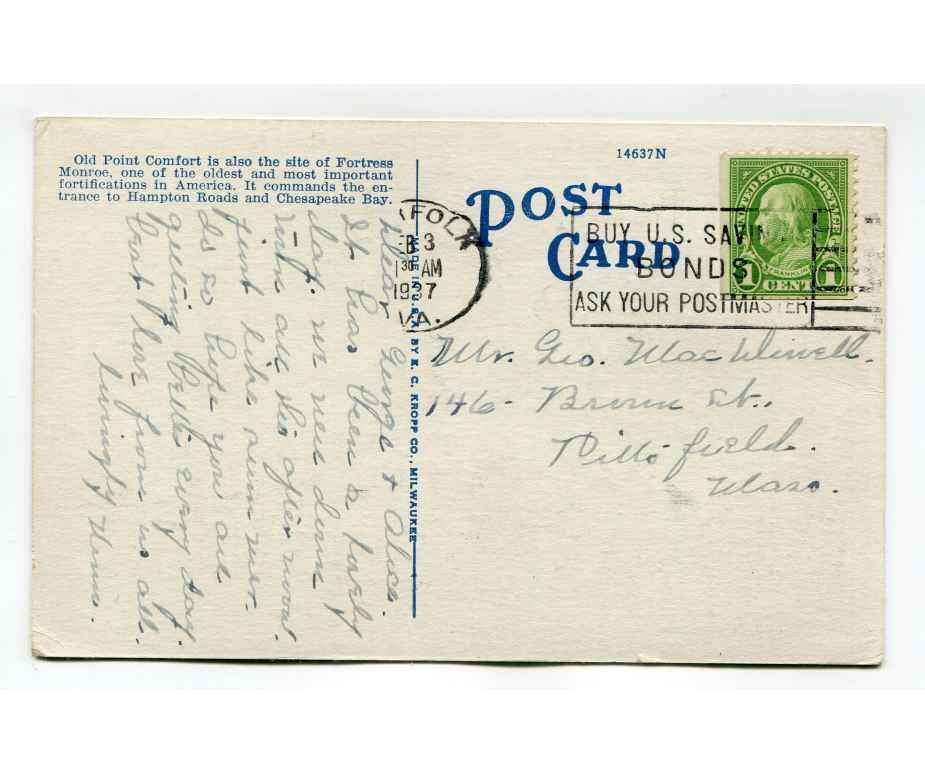 Old Point Comfort is also the site of Fortress
Monroe, one of the oldest and most important
fortifications in America. It commands the en-
trance to Hampton Roads and Chesapeake Bay.
14637N
POST
CARD
FOLK
EB 3
30 AM
1937
VA.
BUY U.S. SAVIN
BONDS
ASK YOUR POSTMASTER
UNITED STATES POSTAGE
FRANKLIN
1 CENT 1
DE IN U.S.A. BY E. C. KROPP CO., MILWAUKEE
Dear George & Alice.
It has been a lovely
day. we were down
here all this afternoon.
just like summer.
Do so hope you are
getting better every day.
Best love from us all.
Lovingly
Mr. Geo. Mac
146- Brown St.,
Pittsfield.
Mass.